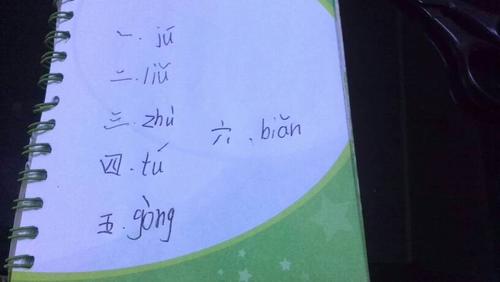 一. jú
二. liǔ
三. zhú
四. tú
五. gòng
六. biǎn